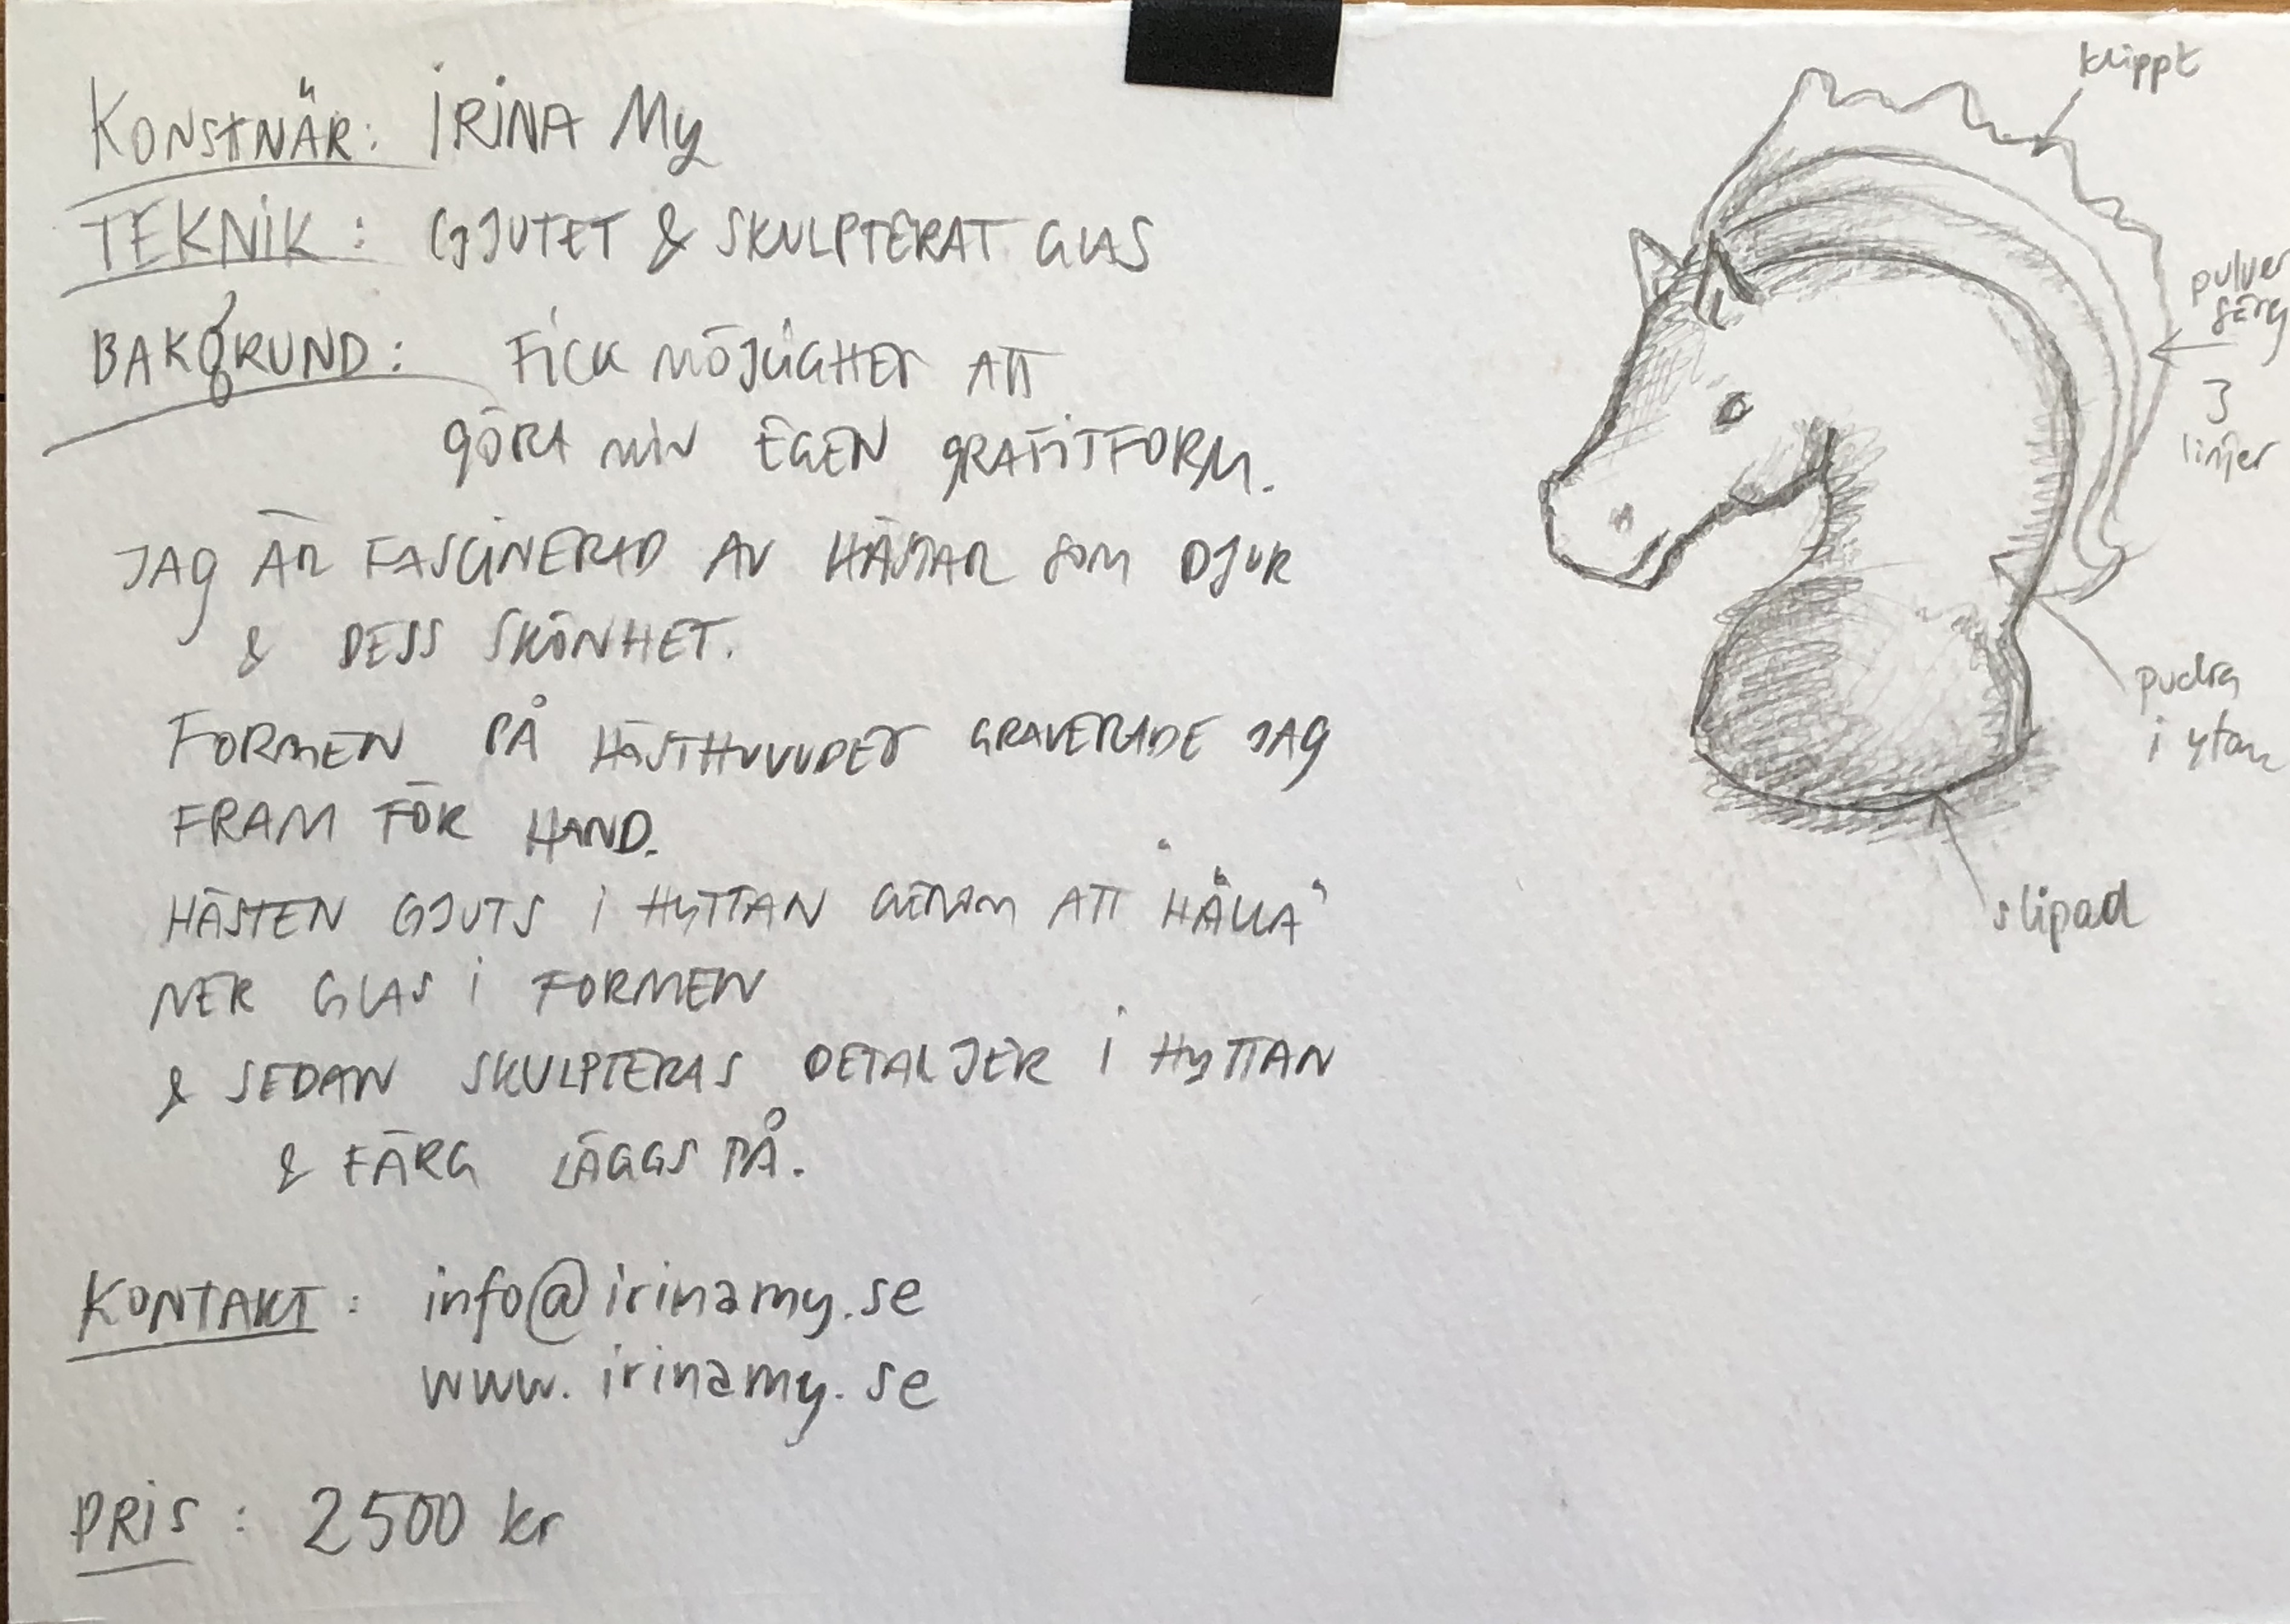 KONSTNÄR: IRINA My
TEKNIK: GJUTET & SKULPTERAT GLAS
BAKGRUND: FICK MÖJLIGHET ATT
GÖRA MIN EGEN GRAFITFORM.
JAG ÄR FASCINERAD AV HÄSTAR SOM DJUR
& DESS SKÖNHET.
FORMEN PÅ HÄSTHUVUDET GRAVERADE JAG
FRAM FÖR HAND.
HÄSTEN GJUTS I HYTTAN GENOM ATT "HÄLLA"
NER GLAS I FORMEN
& SEDAN SKULPTERAS DETALJER I HYTTAN
& FÄRG LÄGGS PÅ.
KONTAKT: info@irinamy.se
www.irinamy.se
PRIS: 2500 kr
klippt
pulver
färg
3
linjer
pudra
i ytan
slipad